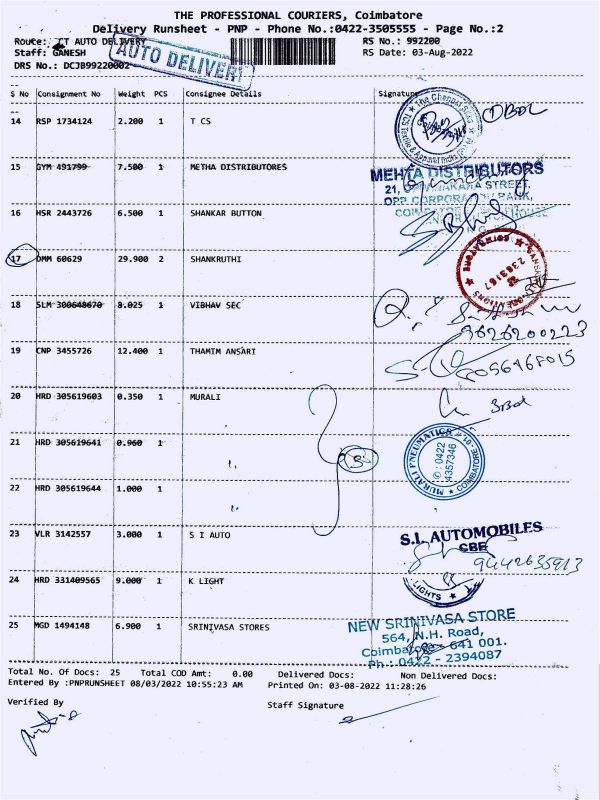 THE PROFESSIONAL COURIERS, Coimbatore
Delivery Runsheet - PNP - Phone No.:0422-3505555 - Page No.:2
Route: CT AUTO DELIVERY
RS No.: 992200
Staff: GANESH
RS Date: 03-Aug-2022
DRS No.: DCJB99220002
AUTO DELIVERY
S No Consignment No Weight PCS Consignee Details Signature
14 RSP 1734124 2.200 1 T CS
15 GYM 491799 7.500 1 METHA DISTRIBUTORES
MEHTA DISTRIBUTORS
STREET,
16 HSR 2443726 6.500 1 SHANKAR BUTTON
17 DMM 60629 29.900 2 SHANKRUTHI
2383167
18 SLM 300648670 8.025 1 VIBHAV SEC
9626200223
19 CNP 3455726 12.400 1 THAMIM ANSARI
8056468015
20 HRD 305619603 0.350 1 MURALI
21 HRD 305619641 0.960 1
3
MURALI PNEUMATICS
0422
4357346
COIMBATORE
22 HRD 305619644 1.000 1
23 VLR 3142557 3.000 1 S I AUTO
S.I. AUTOMOBILES
CBE
9442635913
24 HRD 331409565 9.000 1 K LIGHT
LIGHTS
25 MGD 1494148 6.900 1 SRINIVASA STORES
NEW SRINIVASA STORE
564, N.H. Road,
Coimbatore - 641 001.
Ph.: 0422 - 2394087
Total No. Of Docs: 25 Total COD Amt: 0.00 Delivered Docs: Non Delivered Docs:
Entered By :PNPRUNSHEET 08/03/2022 10:55:23 AM Printed On: 03-08-2022 11:28:26
Verified By
Staff Signature